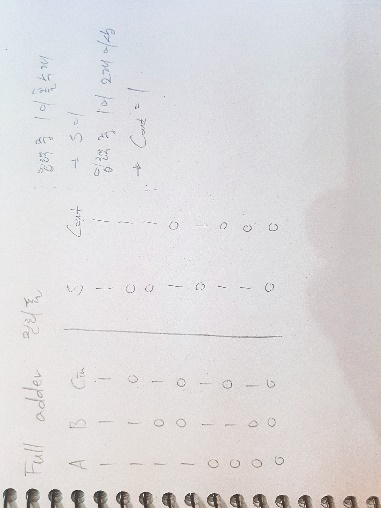 Full adder 진리표
A B Cin S Cout
1 1 1 1 1
1 1 0 0 1
1 0 1 0 1
1 0 0 1 0
0 1 1 0 1
0 1 0 1 0
0 0 1 1 0
0 0 0 0 0
: 입력 중 1이 홀수개
→ S
입력 중 1이 2개 이상
→ Cout = 1